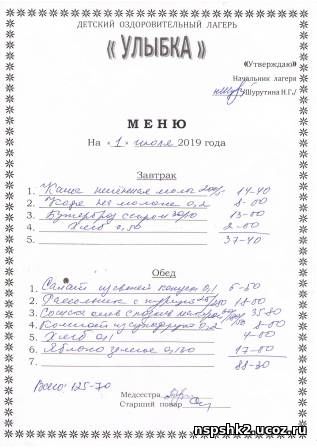 ДЕТСКИЙ ОЗДОРОВИТЕЛЬНЫЙ ЛАГЕРЬ
« УЛЫБКА »
«Утверждаю»
Начальник лагеря
/Шурутина Н.Г./
МЕНЮ
На «1» июля 2019 года
Завтрак
1. Каша пшённая мол 14-40
2. Кофе на молоке 0,2 8-00
3. Бутерброд с сыром 13-00
4. Хлеб 0,50 2-00
5. 37-40
Обед
1. Салат из свежей капусты 0,1
2. Рассольник с курицей 18-00
3. 35-80
4. Компот из сухофрукт 0,2 8-00
5. Хлеб 0,1 4-00
6. Яблоко свежее 17-00
7. 88-30
Всего: 125-70
Медсестра
Старший повар
nspshk2.ucoz.ru